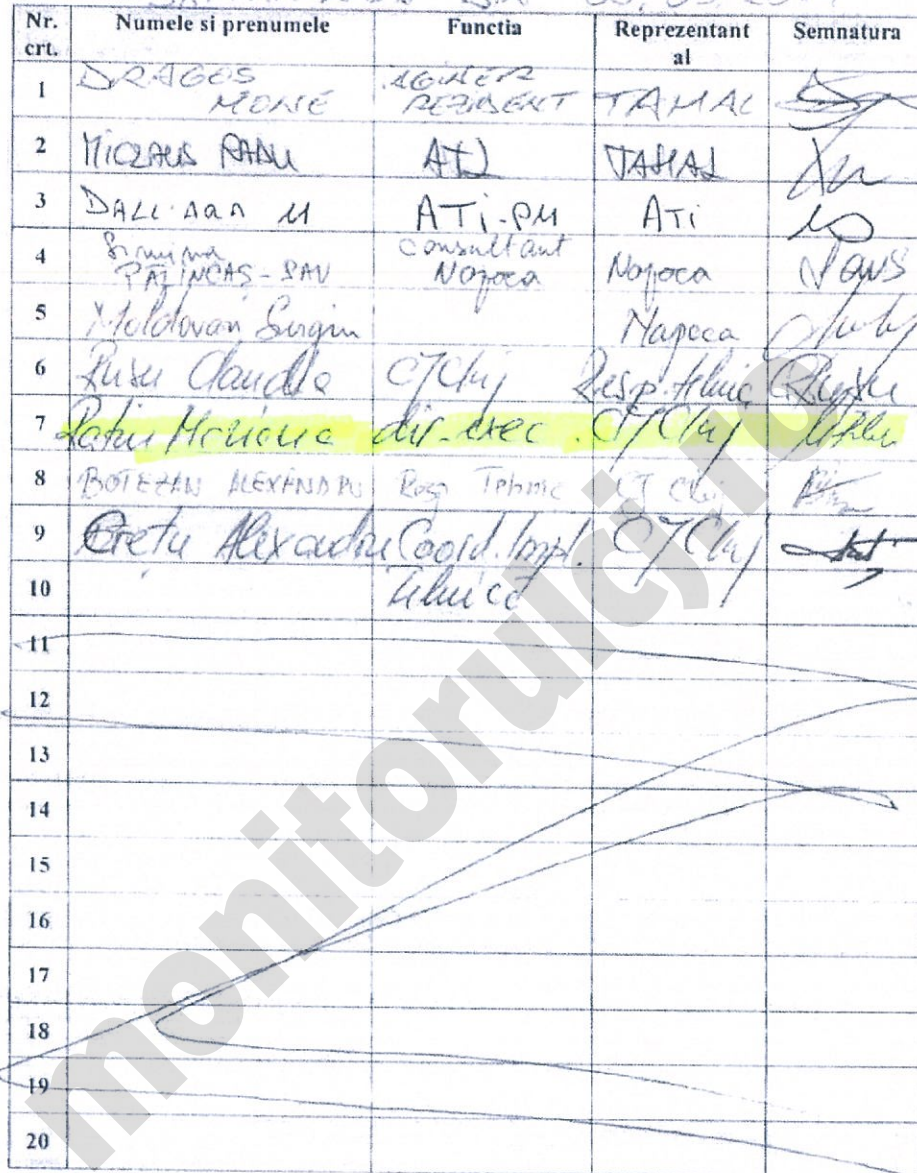 Nr. crt. Numele si prenumele Functia Reprezentant al Semnatura
1 DRAGOS MONE REZIDENT TAMAL
2 MICLAUS RADU ATI TAMAL
3 ATi-PM ATi
4 Simina PĂȘINCAȘ-PAV consultant Napoca Napoca
5 Moldovan Napoca
6 Rusu Claudia CJ Cluj Resp. tehnic
7 dir. exec. CJ Cluj
8 BOTEZAN ALEXANDRU Resp Tehnic CJ Cluj
9 Crețu Alexandru Coord. Impl. Tehnică CJ Cluj
10
11
12
13
14
15
16
17
18
19
20
monitorulcj.ro